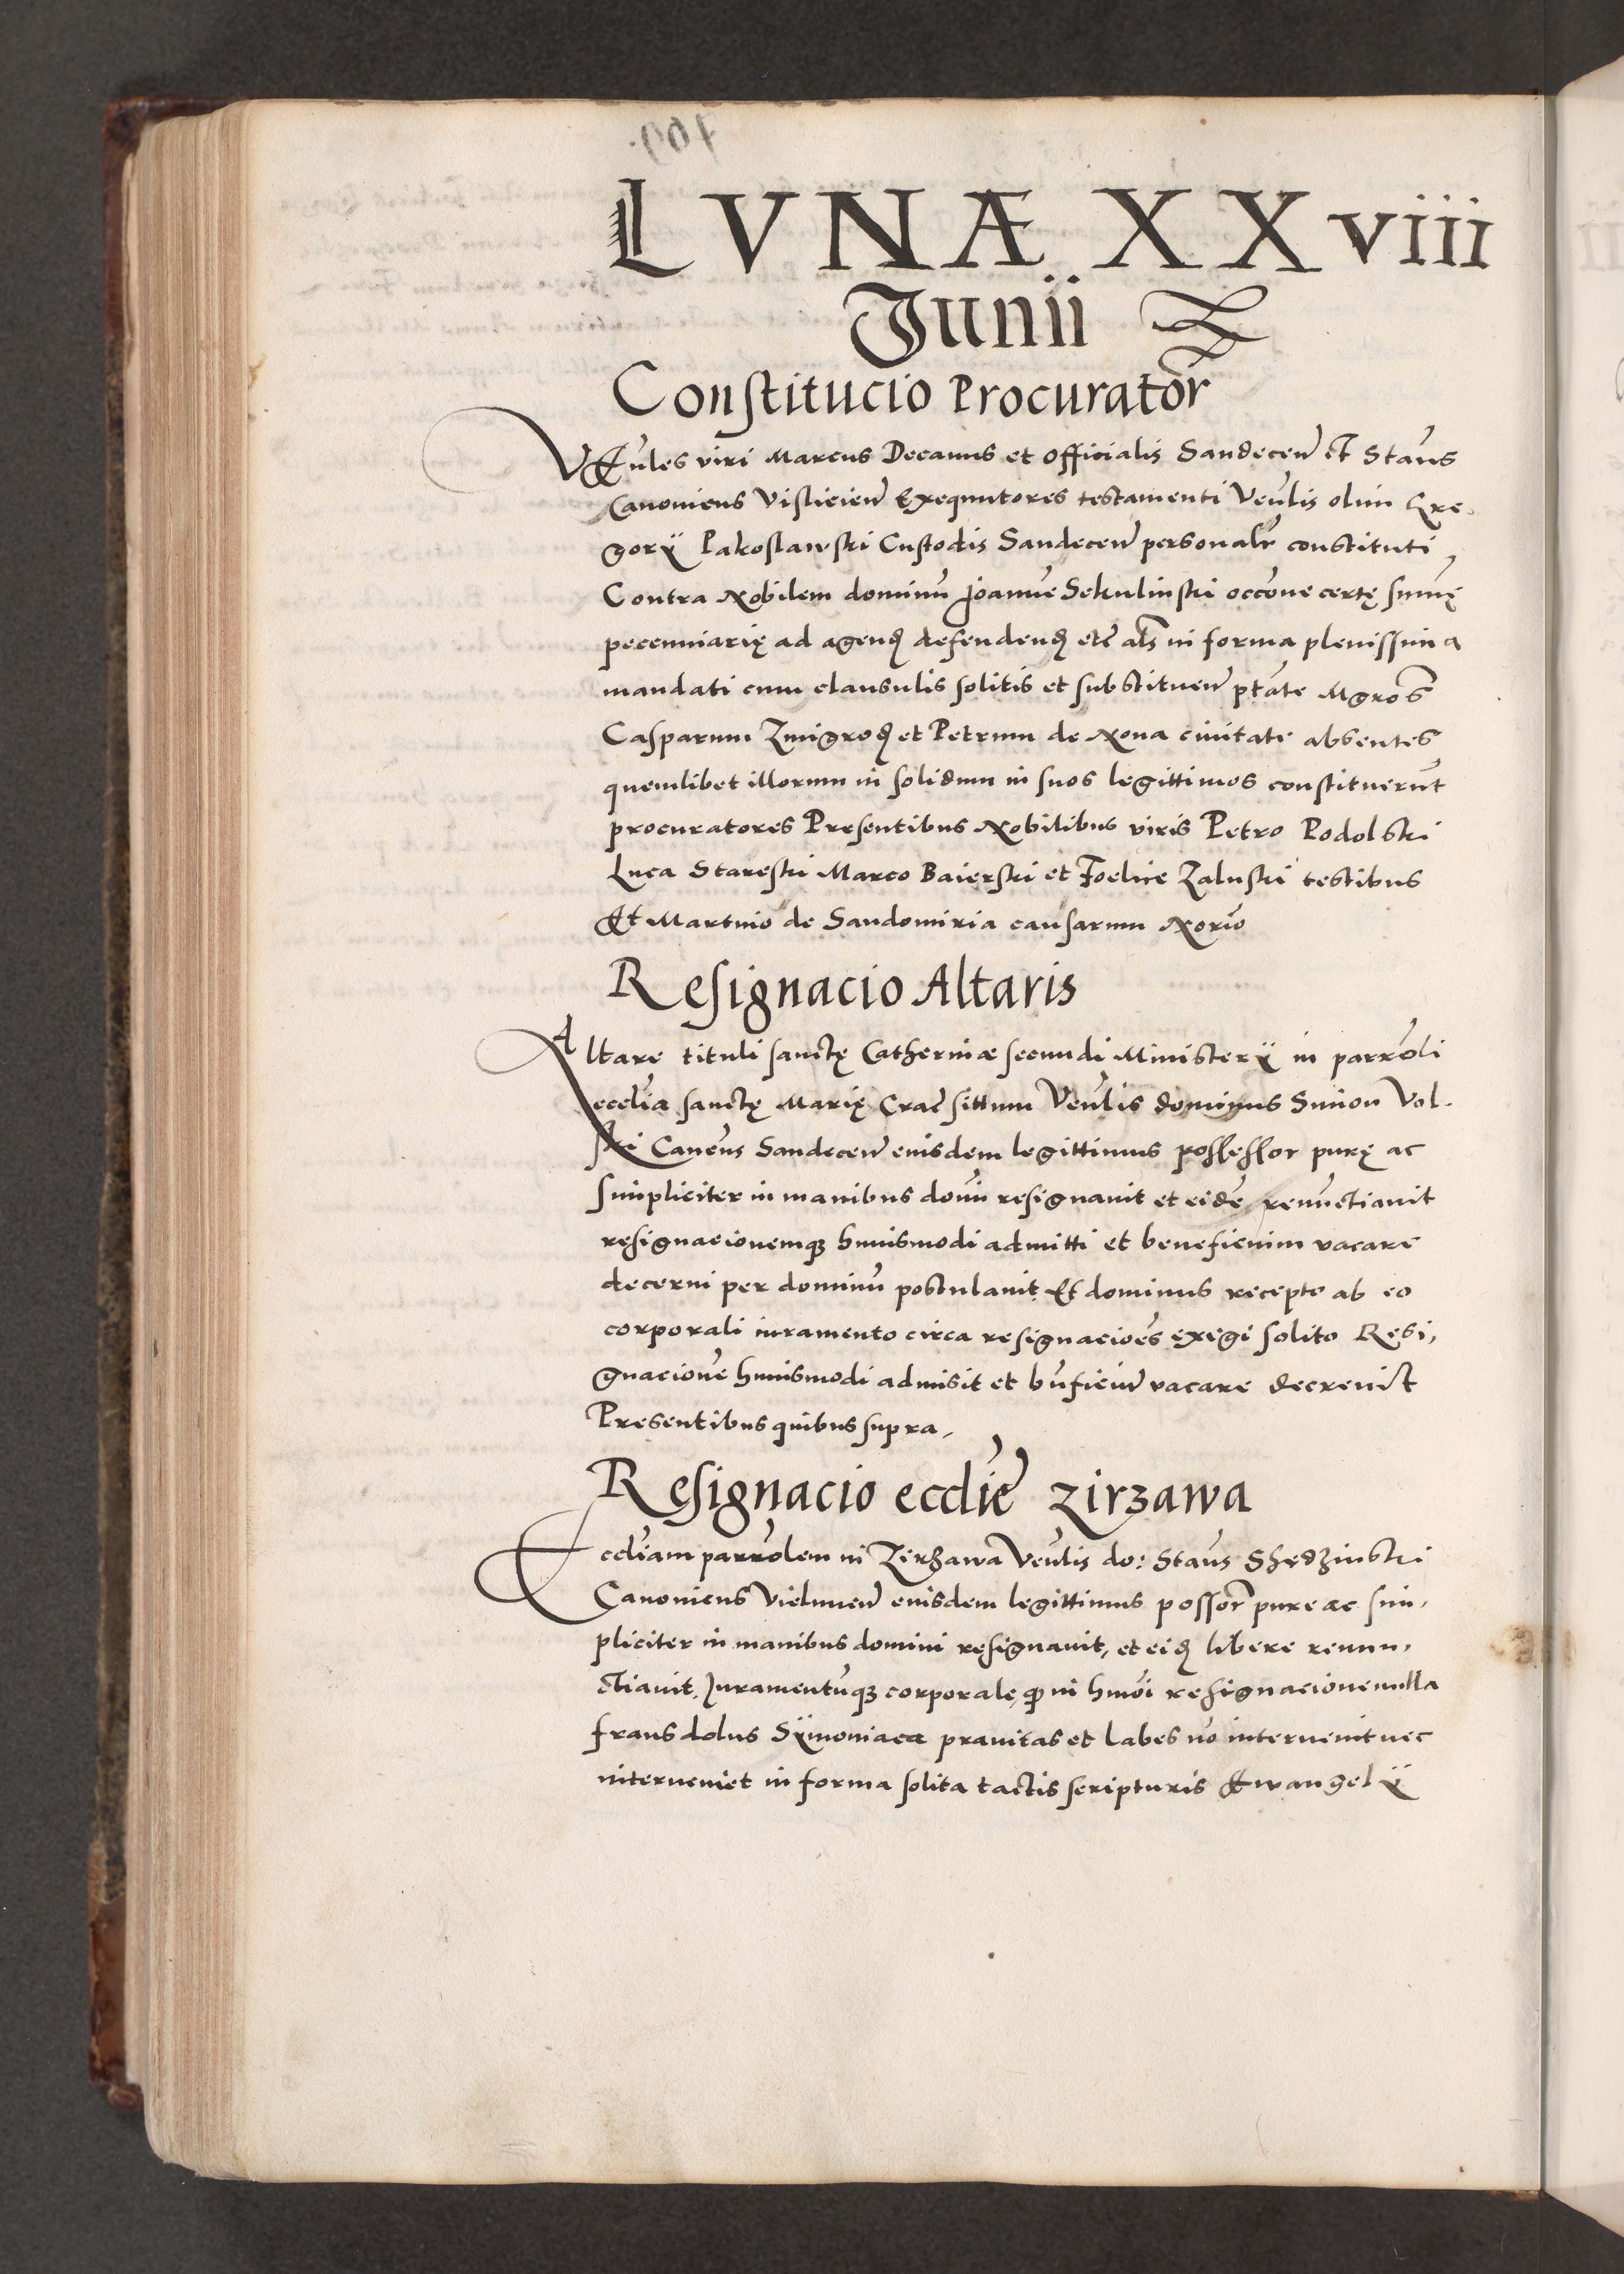 LVNÆ XXviii
Junii
Constitucio Procurator͂
VEn̄les viri Marcus Decanus et Officialis Sandecen̄ et Stan̄s
Canonicus Vislicien̄ Exequutores testamenti Ven̄lis olim Gre-
gorÿ Pakoslawski Custodis Sandecen̄ personalr̄ constituti
Contra Nobilem dominū Joannē Sekulinski occōne certę sum̄ę
pecunniarię ad agend̄ defendend̄ etc̄ als̄ in forma plenissima
mandati cum clausulis solitis et substituen̄ ptāte Mgros̄
Casparum Zmigrod̄ et Petrum de Noua ciuitate absentes
quemlibet illorum in solidum in suos legittimos constituerūt
procuratores Presentibus Nobilibus viris Petro Podolski
Luca Stareski Marco Baierski et Foelice Zaluski testibus
Et Martino de Sandomiria causarum Norīo
Resignacio Altaris
Altare tituli sanctę Catherinæ secundi Ministerÿ in parrōli
eccl̄ia sanctę Marię Crac̄ sittum Ven̄lis dominus Simon Vol-
ski Can̄cus Sandecen̄ eiusdem legittimus possessor purę ac
simpliciter in manibus domī resignauit et eidē renunctiauit
resignacionemqȝ huiusmodi admitti et beneficium vacare
decerni per dominū postulauit Et dominus recepto ab eo
corporali iuramento circa resignacioēs exigi solito Resi,
gnacionē huiusmodi admisit et bn̄ficiū vacare decreuit
Presentibus quibus supra,
Resignacio eccl̄ie zirzawa
Eccl̄iam parrōlem in Zirzawa Ven̄lis do: Stan̄s Shędzinski
Canonicus Vielunen̄ eiusdem legittimus possor̄ pure ac sim,
pliciter in manibus domini resignauit, et eid̄ libere renun,
ctiauit, Juramentūqȝ corporale, ꝙ in hmōi resignacione nulla
fraus dolus Sÿmoniaca prauitas et labes nō interuenit nec
interueniet in forma solita tactis scripturis Ewangelÿ